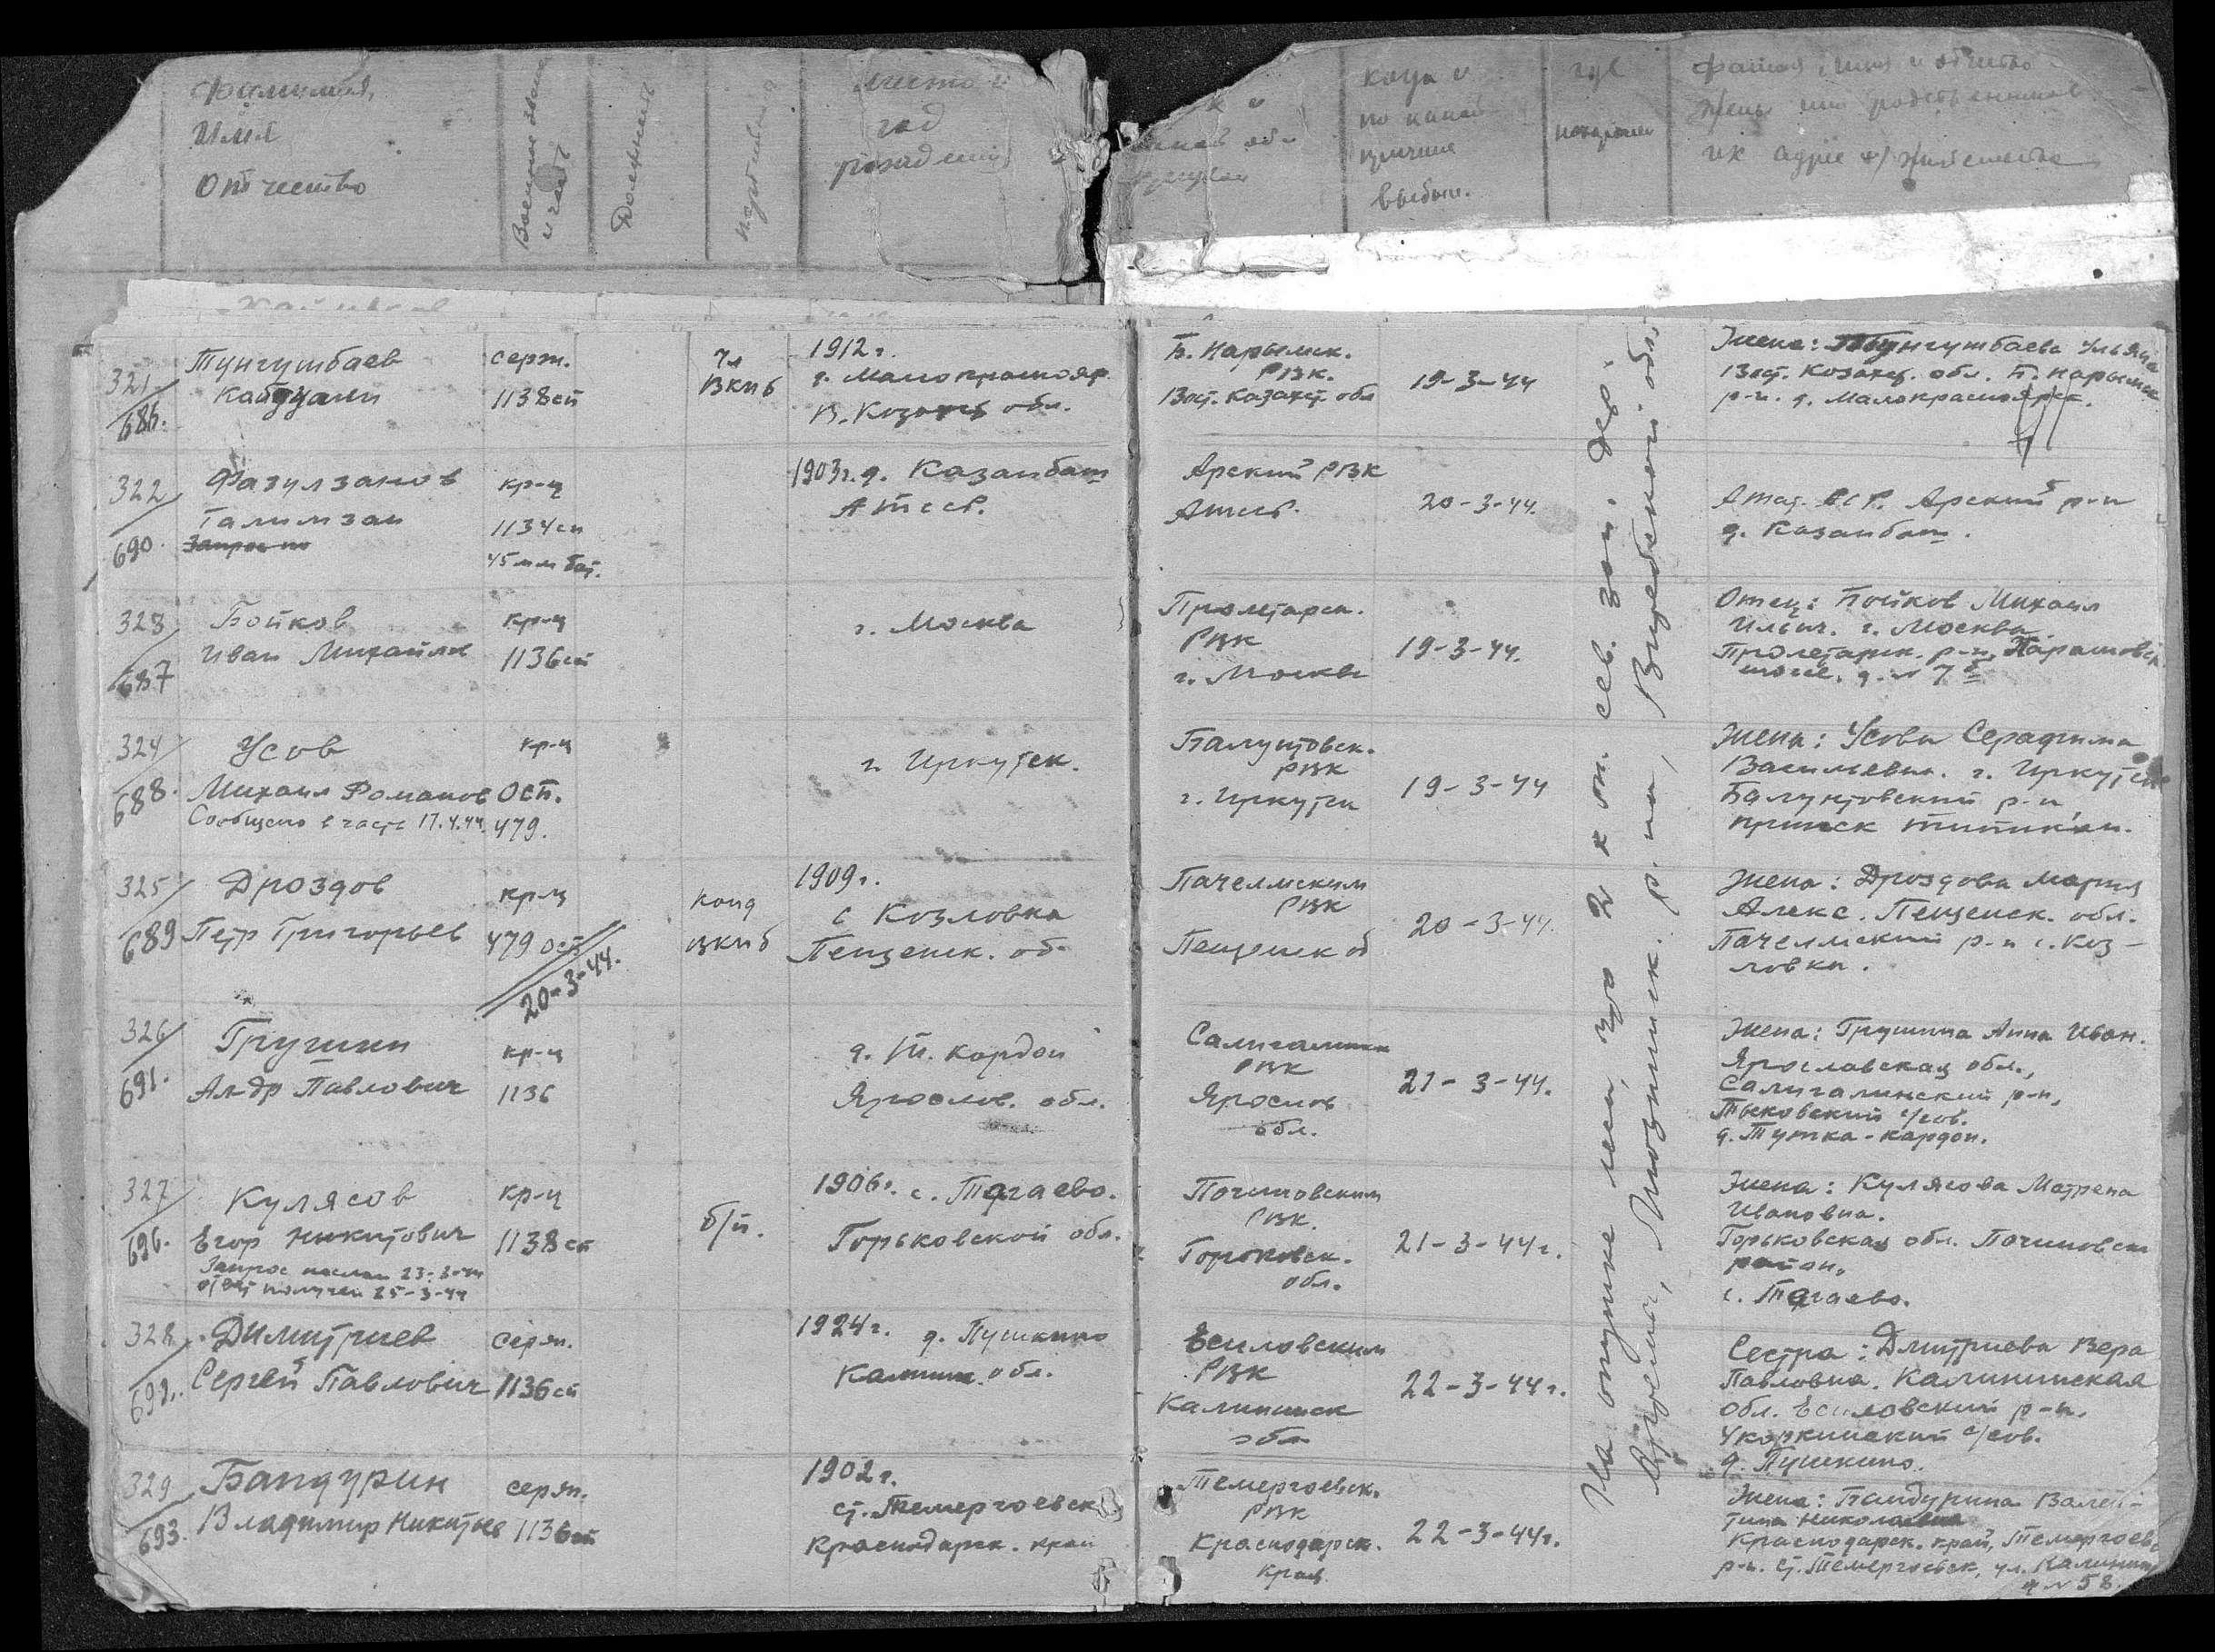 Фамилия,
Имя
Отчество
Военное звание
и часть
Должность
Партийность
место и
год
рождения
когда и
по какой
причине
выбыл.
где
похоронен
фамил, имя и отчество
жены или родственников
их адрес м/жительства
321/686.
Тунгушбаев
серж.
1138сп
чл
ВКПб
1912 г.
В. Козахст обл.
Б. Нарымск.
РВК.
Вост. Казахст. обл
19-3-44
Жена: Тунгушбаева Ульяна
Вост. Козахст. обл. Б. Нарымск
р-н. д. Малокрасноярск.
322/690.
Фазулзанов
Галимзан
кр-ц
1134сп
45мм бат.
1903г. д. Казанбаш
АТССР.
Арский РВК
Атсср.
20-3-44.
А тат. ССР. Арский р-н
д. Казанбаш.
323/687
Бойков
Иван Михайлов
кр-ц
1136сп
г. Москва
Пролетарск.
РВК
г. Москва
19-3-44.
Отец: Бойков Михаил
Ильич. г. Москва.
Пролетарск. р-н,
шоссе, д. №
324/688.
Усов
Михаил Романов
Сообщено в часть 17.4.44.
кр-ц
ОСП.
479.
г. Иркутск.
РВК
г. Иркутск
19-3-44
Жена: Усова Серафима
Васильевна. г. Иркутск
р-н,
прииск
325/689
Дроздов
Петр Григорьев
кр-ц
479 осп
20-3-44.
канд
ВКПб
1909г.
с Козловка
Пензенск. об-
Пачелмским
РВК
Пензенск об
20-3-44.
Жена: Дроздова Мария
Алекс. Пензенск. обл.
Пачелмский р-н с. Коз-
ловка.
326/691.
Грушин
Ал-др Павлович
кр-ц
1136
д. Т. Кордон
Ярослов. обл.
РВК
Ярослов
обл.
21-3-44.
Жена: Грушина Анна Иван.
Ярославская обл.,
Салигалинский р-н,
Тыковский с/сов.
д. Тутка-Кардон.
327/696.
Кулясов
Егор Никитович
Запрос послан 23-3-44
ответ получен 25-3-44
кр-ц
1138сп
б/п.
1906г. с. Тагаево.
Горьковской обл.
Починовским
РВК.
Горьковск.
обл.
21-3-44г.
Жена: Кулясова Матрена
Ивановна.
Горьковская обл. Починовски
район,
с. Тагаево.
328/692.
Димитриев
Сергей Павлович
серж.
1136сп
1924г. д. Пушкино
Калинин. обл.
Есиловским
РВК
Калининск
обл
22-3-44г.
Сестра: Дмитриева Вера
Павловна. Калининская
обл. Есиловский р-н.
с/сов.
д. Пушкино.
329/693.
Бандурин
Владимир Никитов
серж.
1136сп
1902г.
ст. Темергоевск
Краснодарск. край
Темергоевск.
РВК
Краснодарск.
край
22-3-44г.
Жена: Бандурина Вален-
тина Николаевна
Краснодарск. край, Темергоевс
р-н. ст. Темергоевск, ул. Калинина
№58.
На опушке леса, что 2 км сев. зап. дер.
р-на, Витебской обл.